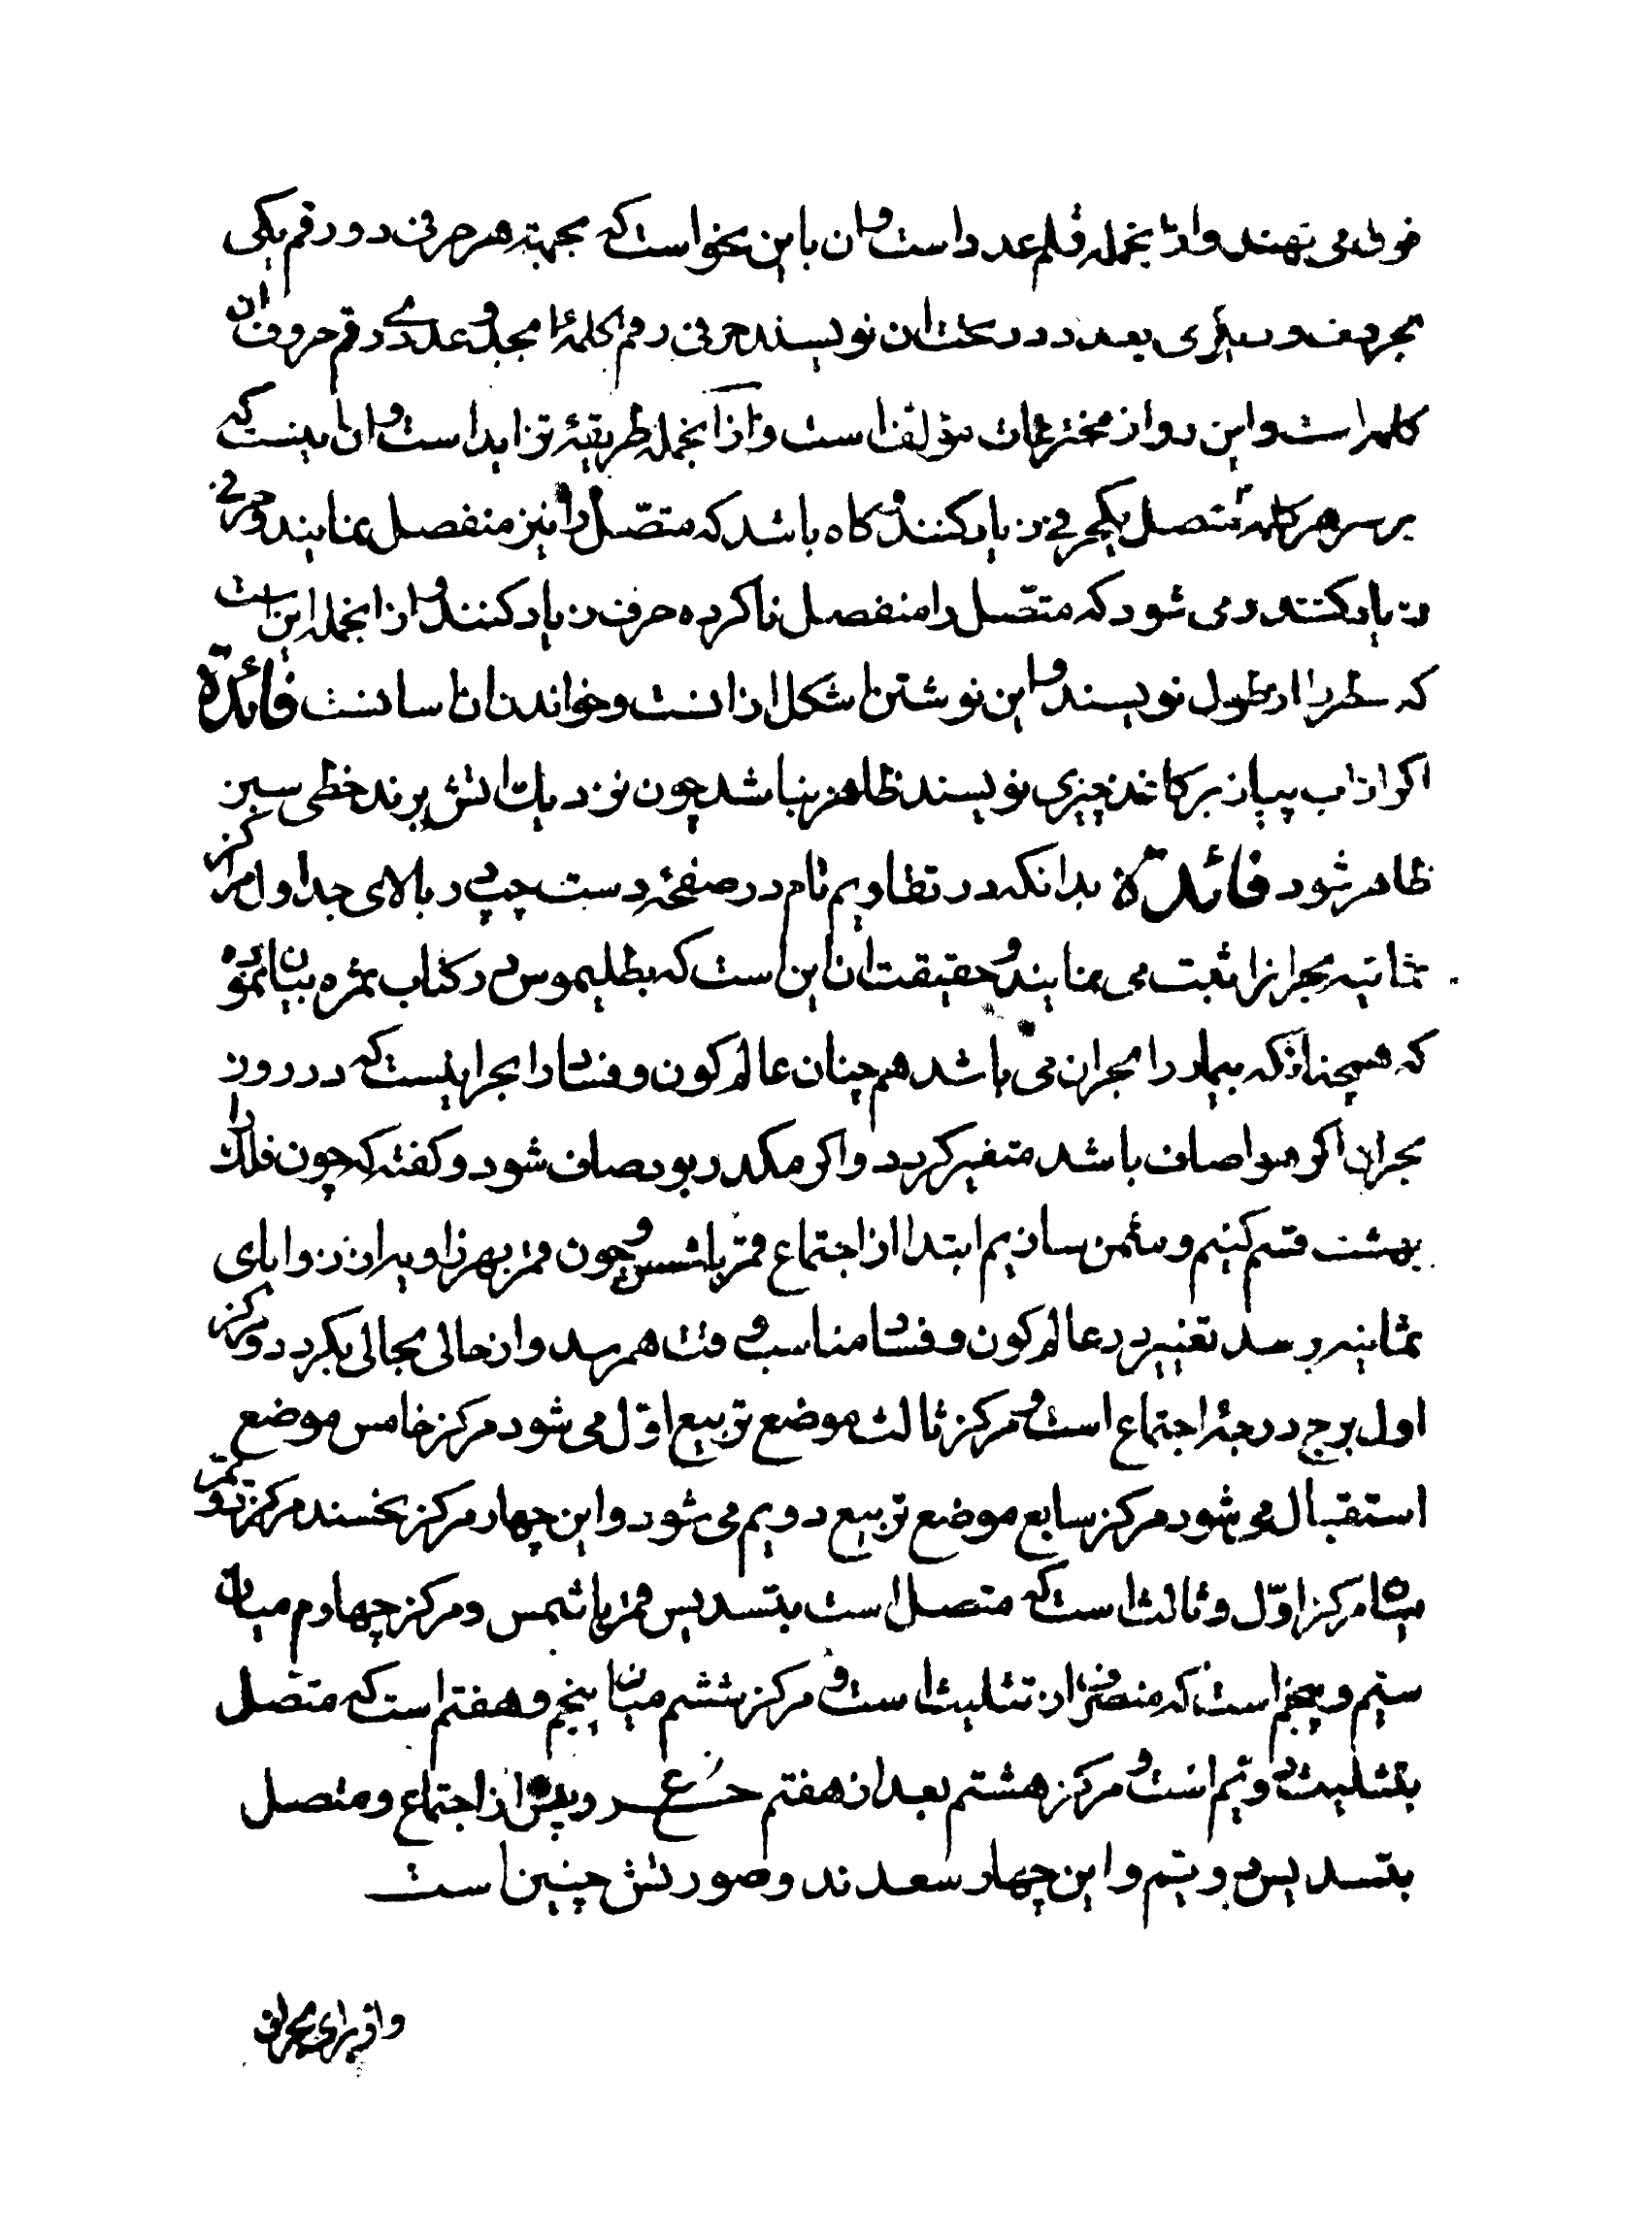 فوق می نهند و ازانجمله قلم عدد است و ان باین نحو است که بجهته هر حرفی دو رقم یکی
بحروف و دیگری بعدد در تحت ان نویسند حرفی رقم کلمه ا بجد و عددی رقم حروف ان
کلمه است و این دو از مخترعات مؤلف است و ازانجمله طریقهٔ تزاید است و ان اینست که
بر سر هر کلمه متصل یکحرفی زیاد کنند و کاه باشد که متصّل را نیز منفصل نمایند و حرفی
زیاد کنند و می شود که متصّل را منفصل نا کرده حرف زیاد کنند و ازانجمله این است
که سطر را از طول نویسند و این نوشتن اشکل ازانست و خواندن ان اسانست فائدة
اکر از اب پیاز بر کاغذ چیزی نویسند ظاهر نباشد چون نزدیك اتش برند خطی سبز
ظاهر شود فائدة بدانکه در تقاویم تام در صفحهٔ دست چپ در بالای جداول مراکز
ثمانیه بحرانرا ثبت می نمایند و حقیقت ان این است که بطلیموس در کتاب ثمره بیان نموده
که همچنانکه بیمار را بحران می باشد هم چنان عالم کون و فساد را بحرانیست که در روز
بحران اکر هوا صاف باشد متغیر کردد و اکر مکدر بود صاف شود و کفته که چون فلك را
بهشت قسم کنیم و مثمن سازیم ابتدا از اجتماع قمر با شمس و چون قمر بهر زاویه از زوایای
ثمانیه رسد تغییر در عالم کون و فساد مناسب وقت هم رسد و از حالی بحالی بکردد و مرکز
اول برج درجهٔ اجتماع است و مرکز ثالث موضع تربیع اوّل می شود مرکز خامس موضع
استقبال می شود مرکز سابع موضع تربیع دویم می شود و این چهار مرکز نحسند مرکز دویم
میانه مرکز اوّل و ثالث است که متصل است بتسدیس قمر با شمس و مرکز چهارم میانه
سیّم و پنجم است که منصرف از تثلیث است و مرکز ششم میان پنجم و هفتم است که متصل
بتثلیث دویم است و مرکز هشتم بعد از هفتم و پیش از اجتماع و متصل
بتسدیس دویّم و این چهار سعدند و صورتش چنین است